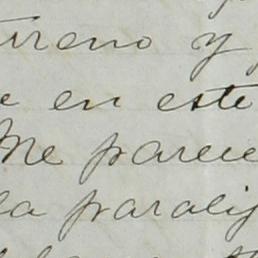 terreno y
e en este
Me parece
la paralij